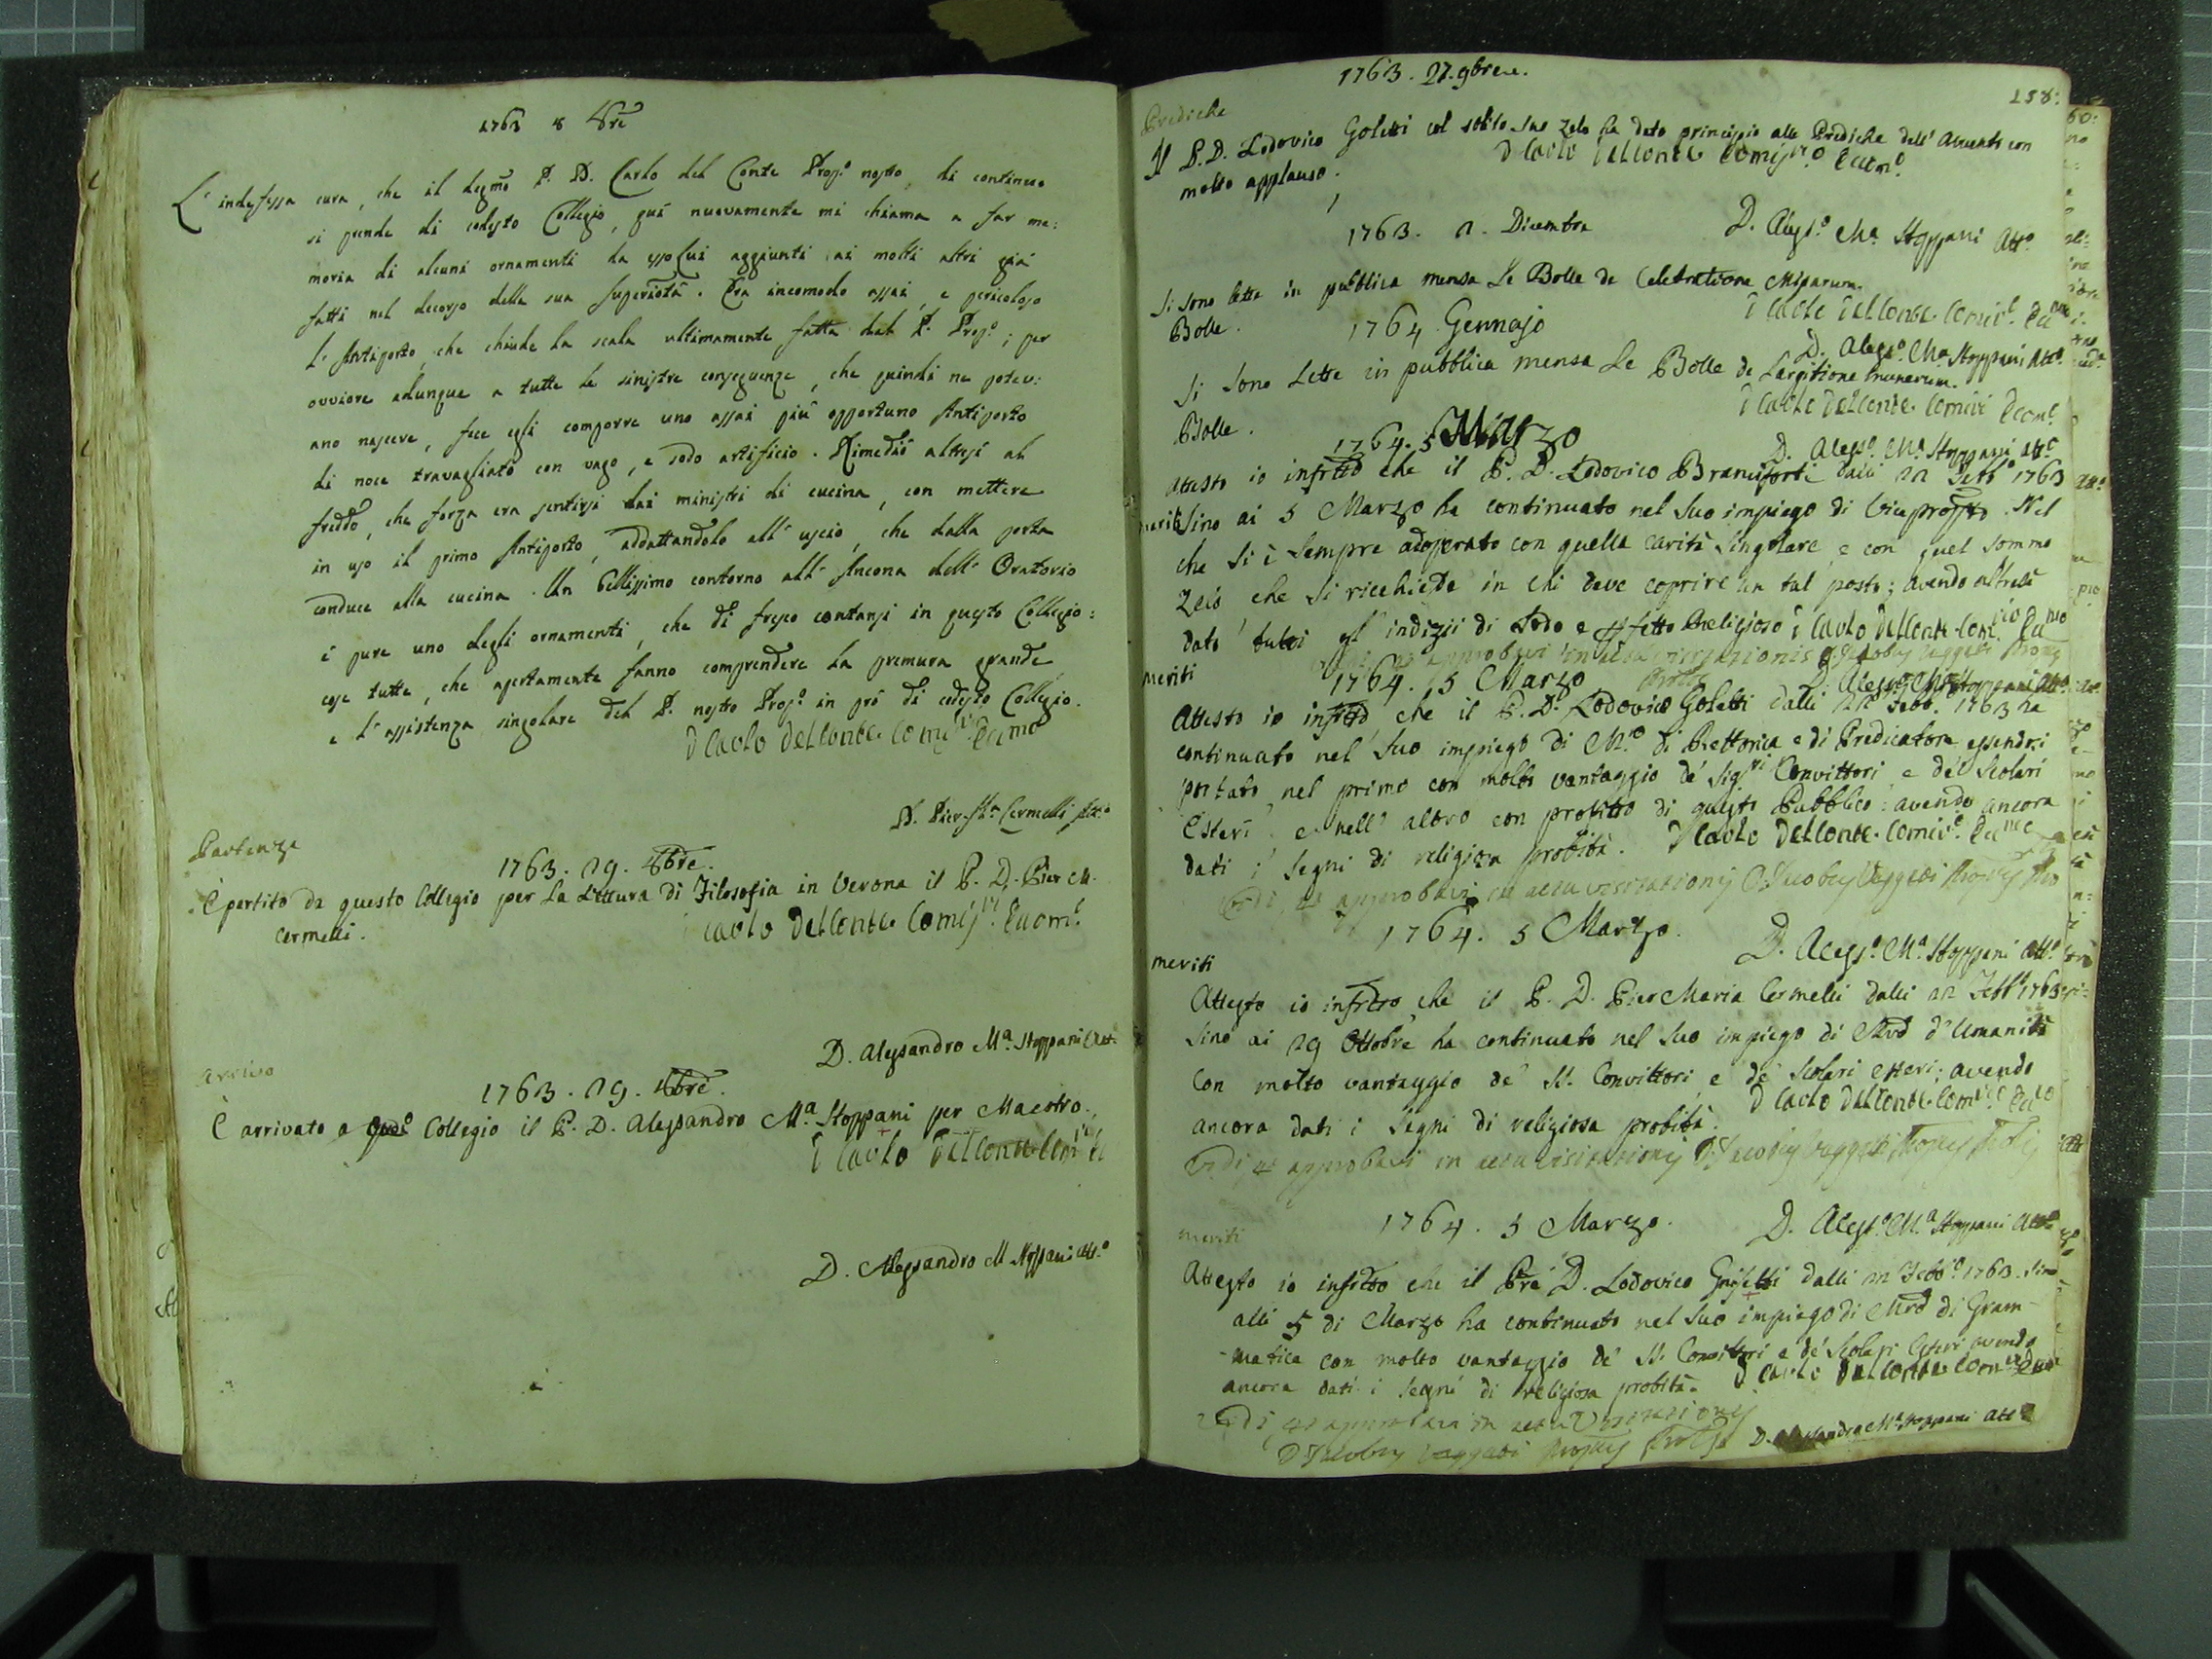 1763 8 8bre
L'indefessa cura, che il degmo P. D. Carlo del Conte Propo nostro, di continuo
si prende di codesto Collegio, quì nuovamente mi chiama a far me:
moria di alcuni ornamenti da esso lui aggiunti ai molti altri già
fatti nel decorso della sua Superiorità. Era incomodo assai, e pericoloso
l'Antiporto, che chiude la scala ultimamente fatta dal P. Propo; per
ovviare adunque a tutte le sinistre conseguenze, che quindi ne potev:
ano nascere, fece egli comporre uno assai più opportuno Antiporto
di noce travagliato con vago, e sodo artificio. Rimediò altresì al
freddo, che forza era sentirsi dai ministri di cucina, con mettere
in uso il primo Antiporto, addattandolo all'uscio, che dalla porta
conduce alla cucina. Un bellissimo contorno all'Ancona dell'Oratorio
è pure uno degli ornamenti, che di fresco contansi in questo Collegio:
cose tutte, che apertamente fanno comprendere la premura grande
e l'assistenza singolare del P. nostro Propo in prò di codesto Collegio.
D Carlo Del Conte
D. Pier Ma Cermelli Atto
Partenza
1763. 29. 8bre.
È partito da questo Collegio per la Lettura di Filosofia in Verona il P. D. Pier M.
Cermelli.
Carlo Del Conte
D. Alessandro Ma. Stoppani Att.
Arrivo
1763. 29. 8bre.
È arrivato a questo Collegio il P. D. Alessandro Ma. Stoppani per Maestro.
D Carlo Del Conte
D. Alessandro M Stoppani Atto
1763. 27. 9bre.
158.
Prediche
Il P. D. Lodovico Goletti col solito suo zelo ha dato principio alle Prediche dell'Avvento con
molto applauso.
D Carlo Del Conte
1763. 2. Dicembre
D. Aless.o Ma. Stoppani Atto
Si sono lette in pubblica mensa Le Bolle de Celebratione Missarum.
Bolle.
D Carlo Del Conte
1764 Gennajo
D. Aless.o Ma. Stoppani Atto
Si sono Lette in pubblica mensa Le Bolle de Largitione Munerum.
Bolle.
D Carlo Del Conte
1764. 5 Marzo
D. Aless.o Ma. Stoppani Atto
Attesto io infrtto che il P. D. Lodovico Branciforti dalli 22 Febb.o 1763
meriti
sino ai 5 Marzo ha continuato nel suo impiego di Viceprepsto. Nel
che si è sempre adoperato con quella carità singolare, e con quel sommo
zelo che si ricchiede in chi deve coprire un tal posto; avendo altresì
dati tutti gl'indizii di sodo e Religioso D Carlo Del Conte
meriti
1764. 5 Marzo
D. Aless.o Ma. Stoppani Atto
Attesto io infrtto che il P. D. Lodovico Goletti dalli 22 Febb. 1763 ha
continuato nel suo impiego di M.ro di Rettorica e di Predicatore essendosi
portato nel primo con molto vantaggio de' Sig.ri Convittori e de' Scolari
Esteri e nell'altro con profitto di questo Pubblico: avendo ancora
dati i segni di religiosa probità. D Carlo Del Conte
Vidi, et approbavi in actu visitationis D Jacobus Vaggati
1764. 5 Marzo.
D. Aless.o Ma. Stoppani Atto
meriti
Attesto io infrtto che il P. D. Pier Maria Cermelli dalli 22 Febb.o 1763
sino ai 29 Ottobre ha continuato nel suo impiego di Mro d'Umanità
con molto vantaggio de' SS. Convittori, e de' Scolari esteri; avendo
ancora dati i segni di religiosa probità.
D Carlo Del Conte
Vidi, et approbavi in actu visitationis D Jacobus Vaggati
1764. 5 Marzo.
D. Aless.o Ma. Stoppani Atto
meriti
Attesto io infrtto che il Pre D. Lodovico Grisetti dalli 22 Febb.o 1763. sino
alli 5 di Marzo ha continuato nel suo impiego di Mro di Gram-
-matica con molto vantaggio de' SS. Convittori e de' Scolari Esteri avendo
ancora dati i segni di religiosa probità. D Carlo Del Conte
Vidi, et approbavi in actu Visitationis
D Jacobus Vaggati
D. Alessandro Ma. Stoppani Atto